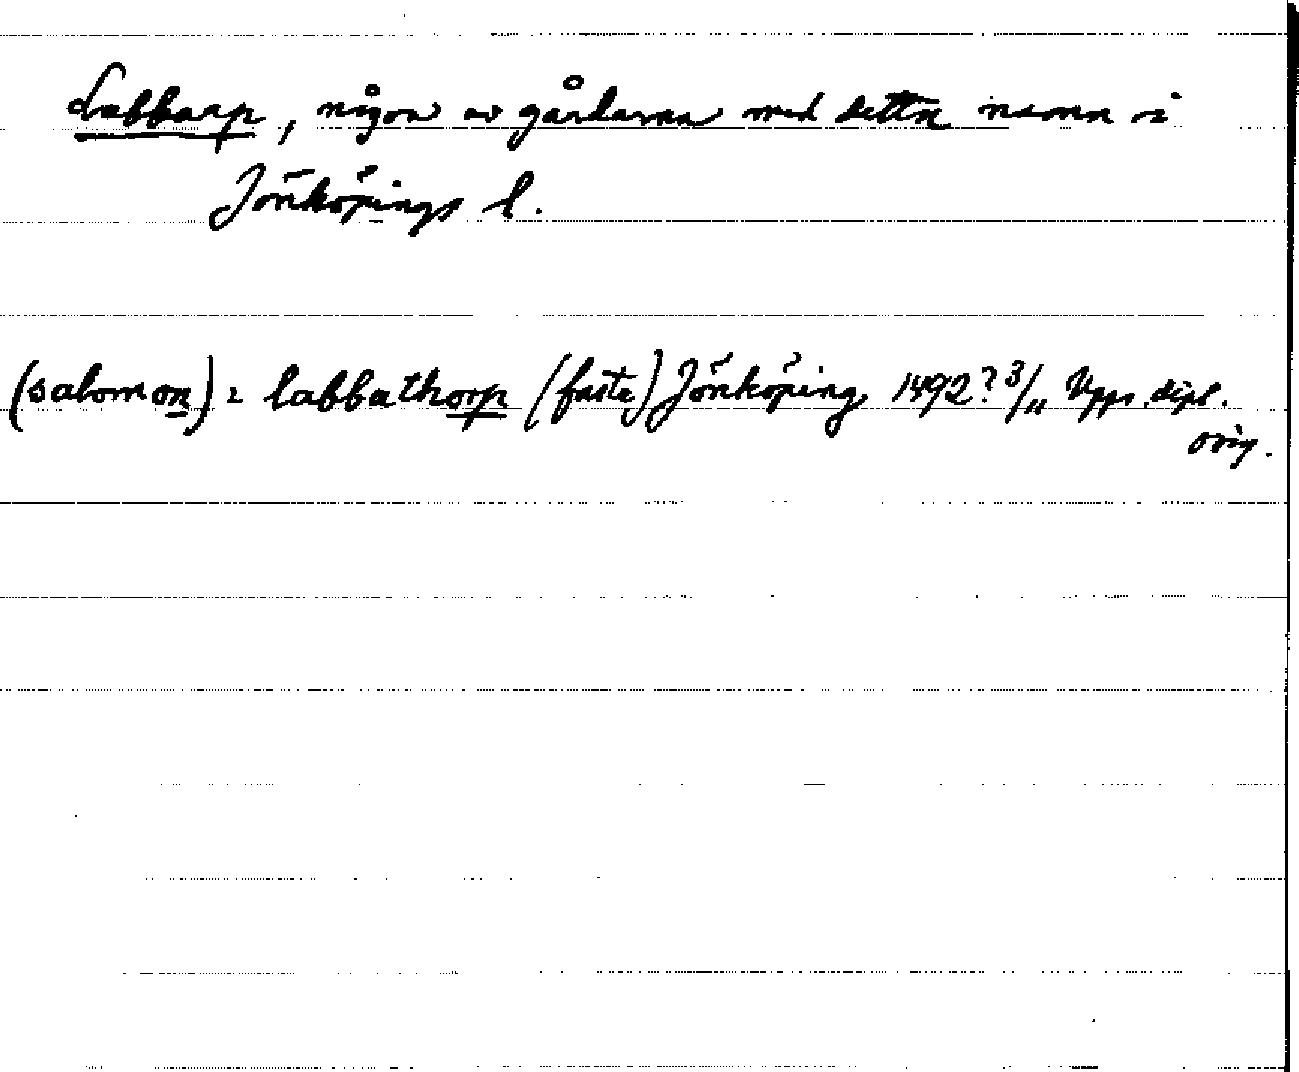 Labbarp, någon av gårdarna med detta namn i
Jönköpings l.
(salomon) i labbathorp (faste) Jönköping 1492? 3/11 Upps. dipl.
orig.